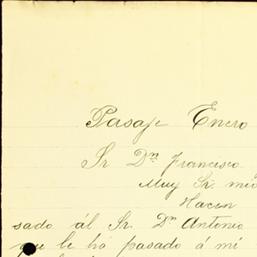 Pasaje Enero
Sr Dn Francisco
Muy Sr. mio
Hacen
sado ál Sr. Dn Antonio
que le ha pasado á mi